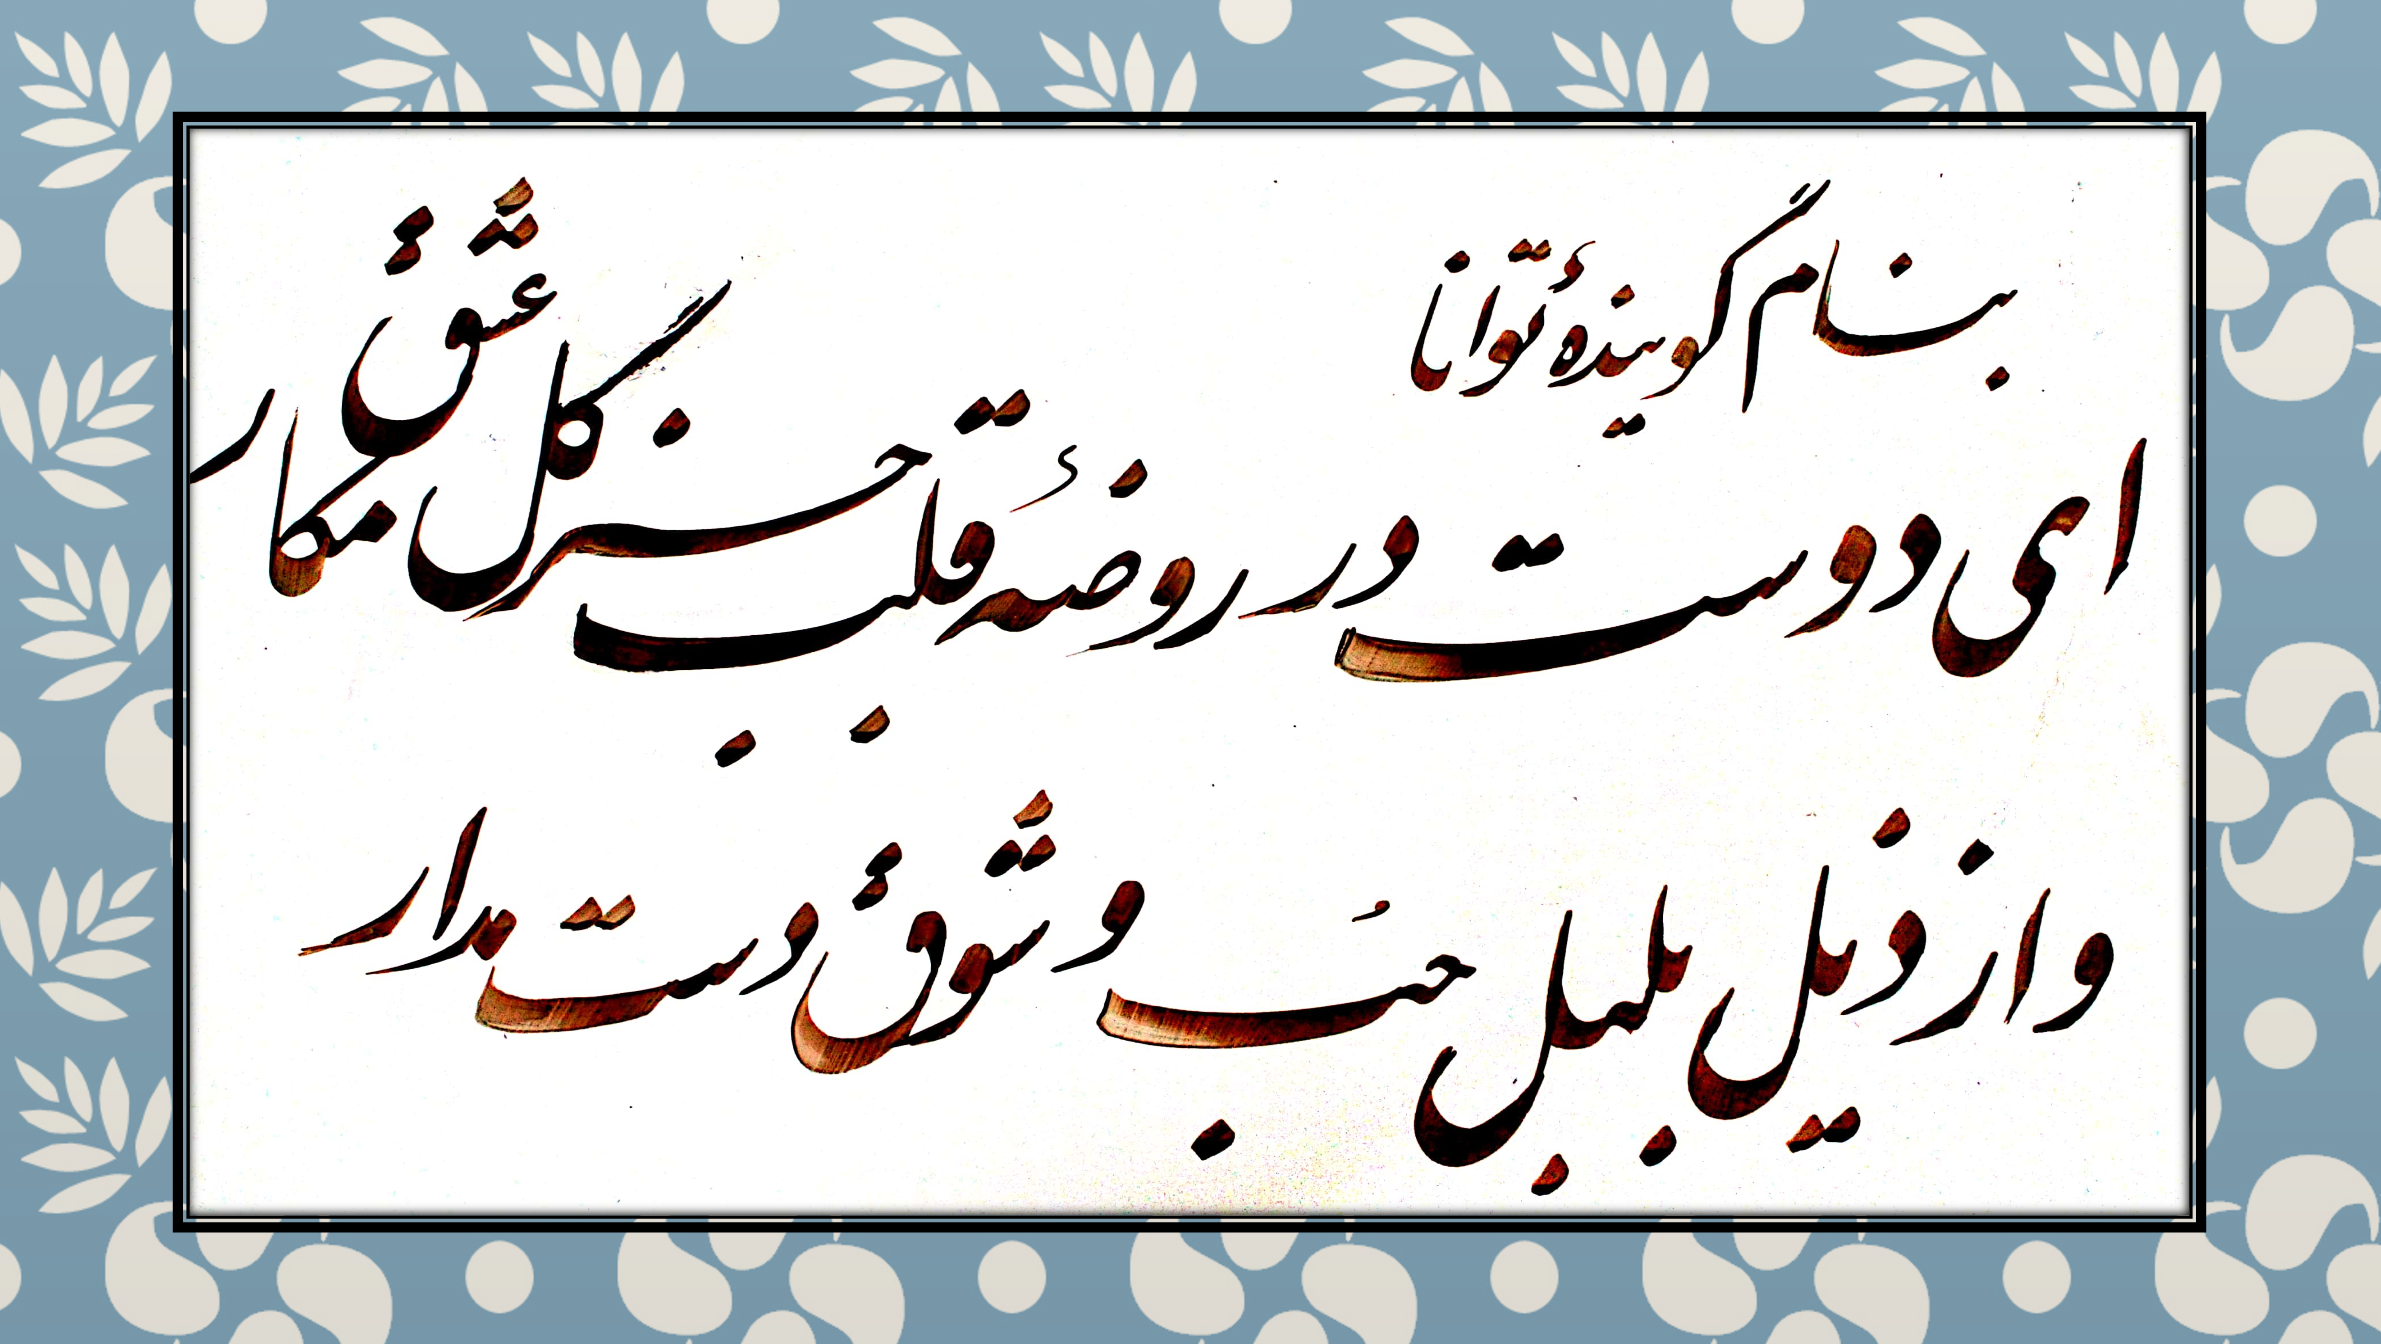 بنام گویندهٔ توانا
ای دوست در روضهٔ قلب جز گل عشق مکار
و از ذیل بلبل حبّ و شوق دست مدار